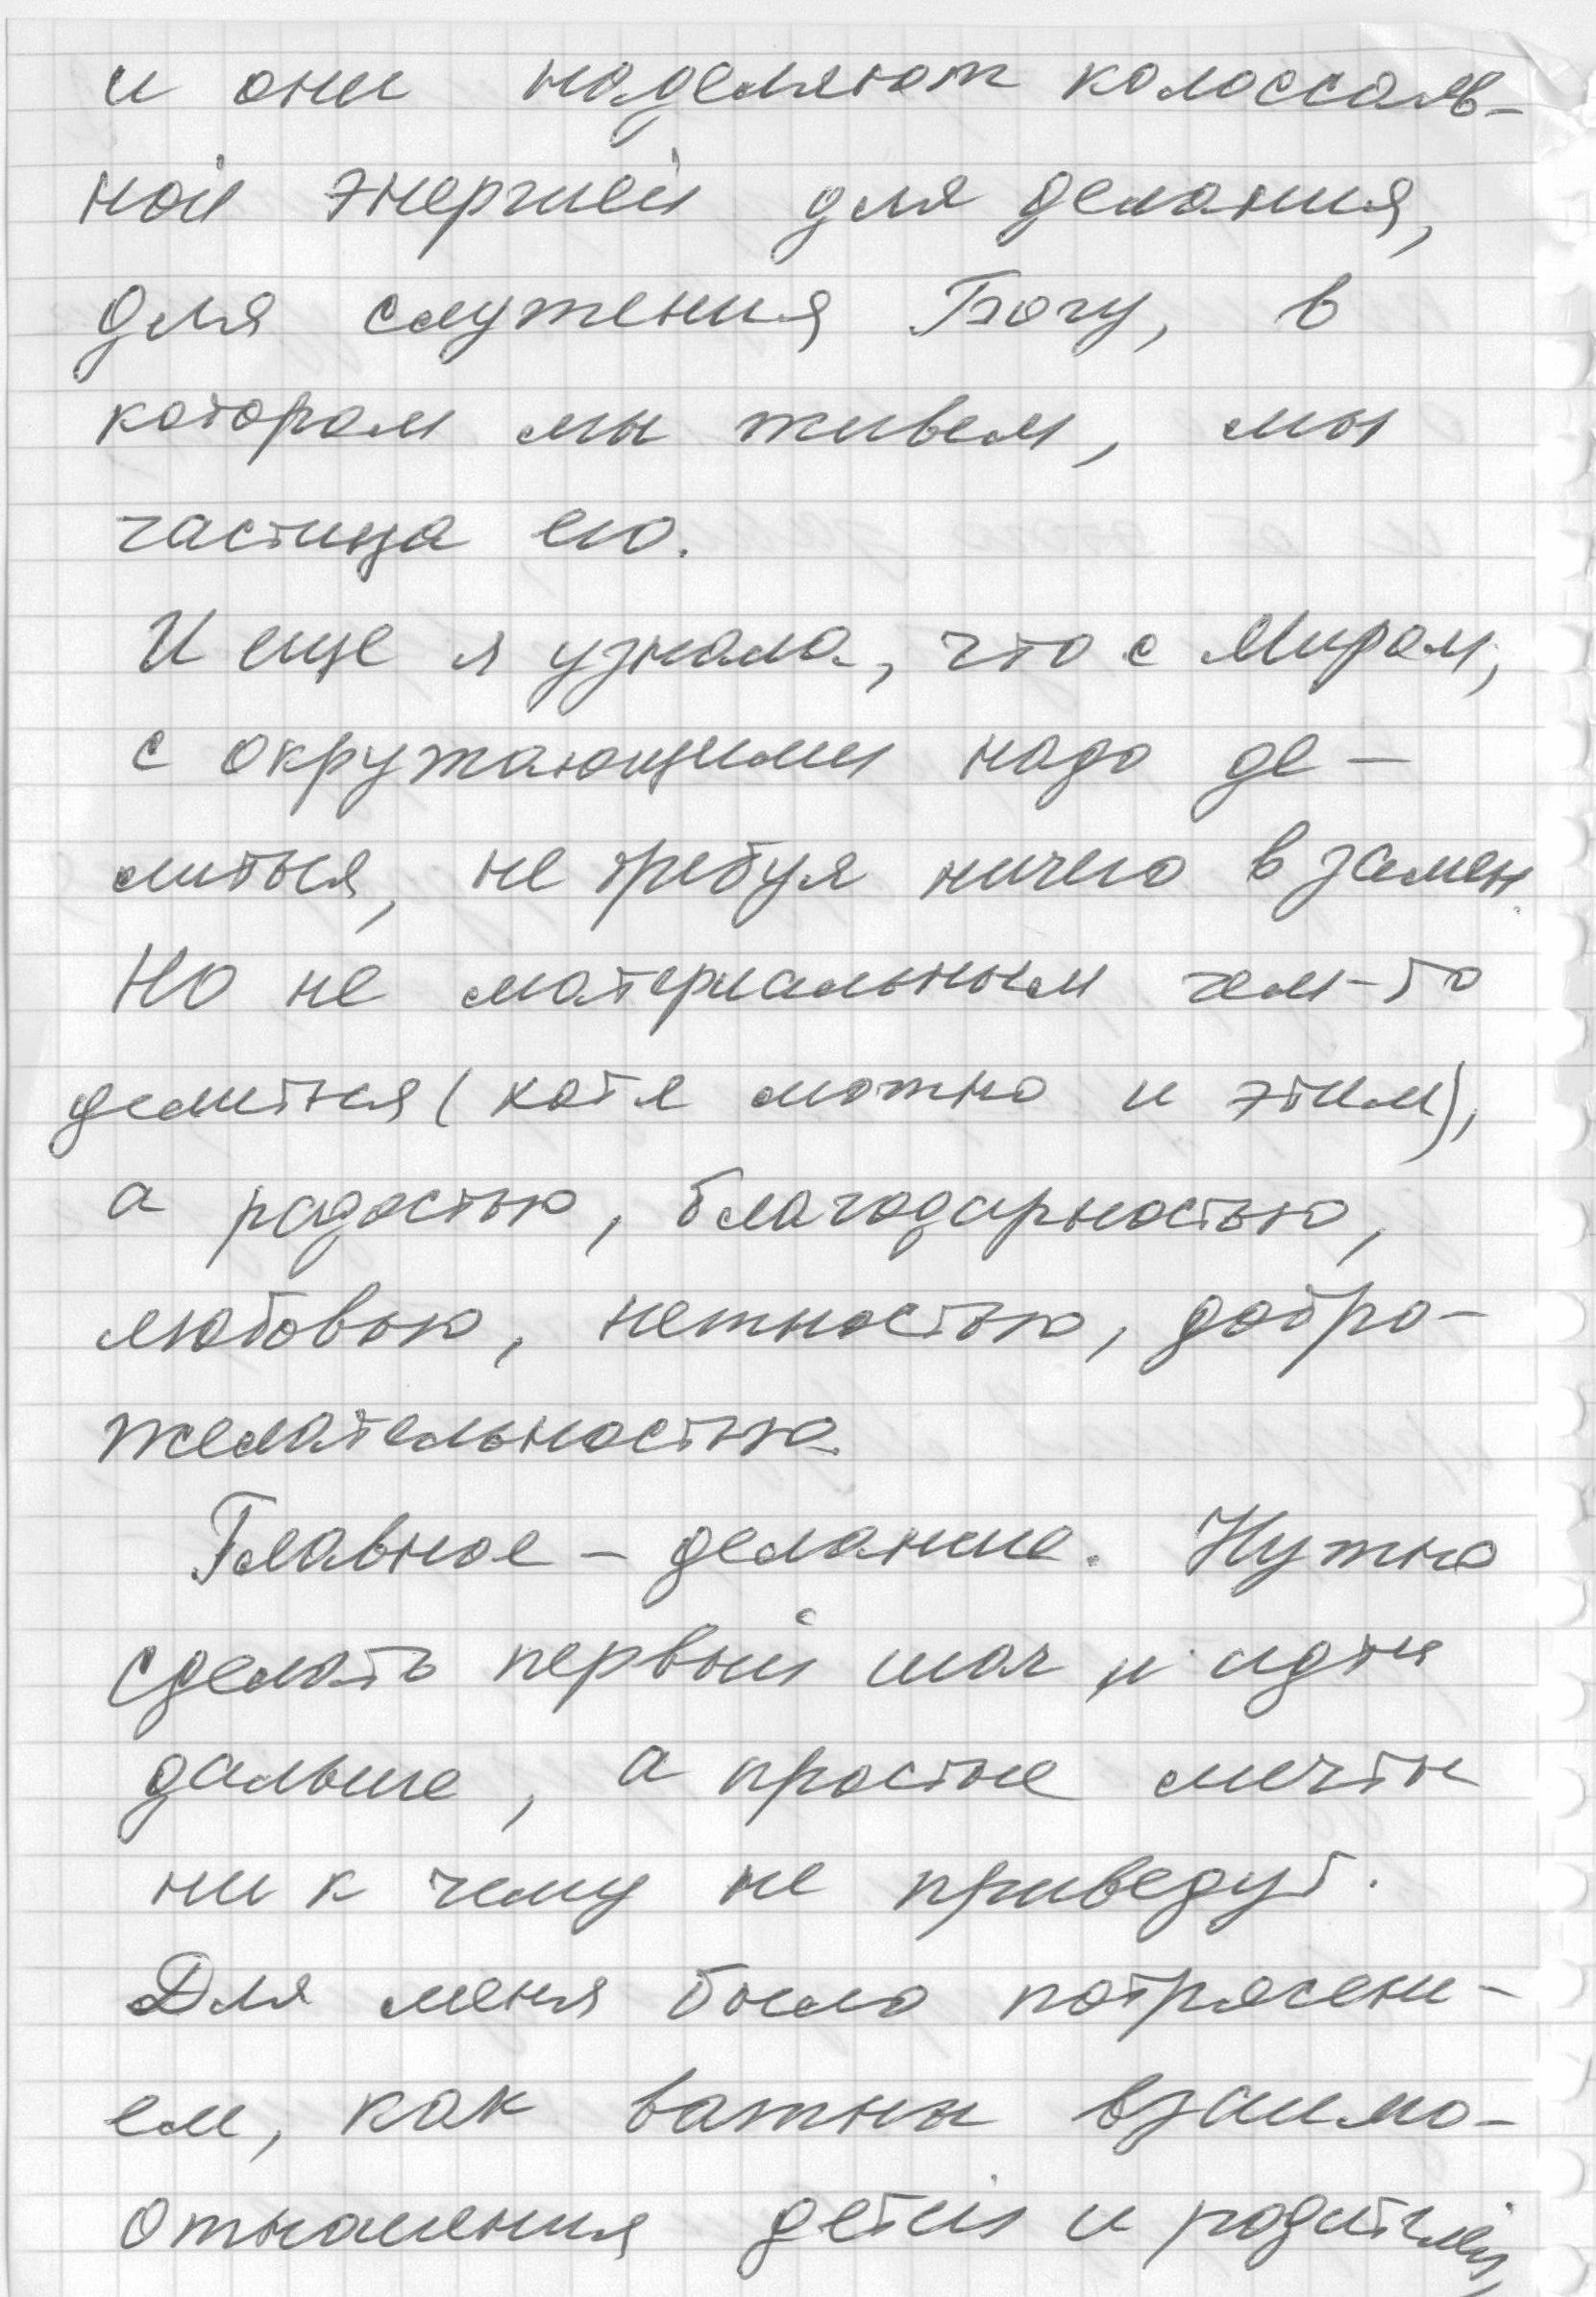 и они наделяют колоссаль-
ной энергией для делания,
для служения Богу, в
котором мы живем, мы
частица его.
И еще я узнала, что с Миром,
с окружающими надо де-
литься, не требуя ничего в замен.
Но не материальным чем-то
делиться (хотя можно и этим),
а радостью, благодарностью,
любовью, нежностью, добро-
желательностью.
Главное - делание. Нужно
сделать первый шаг и идти
дальше, а простые мечты
ни к чему не приведут.
Для меня было потрясени-
ем, как важны взаимо-
отношения детей и родителей,